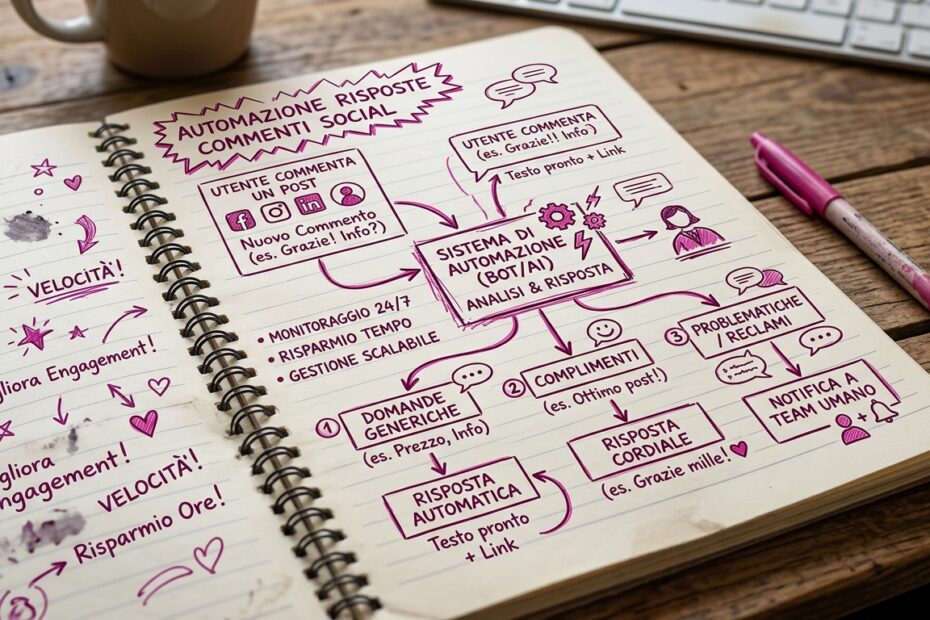 AUTOMAZIONE RISPOSTE
COMMENTI SOCIAL
UTENTE COMMENTA
UN POST
f
in
Nuovo Commento
(es. Grazie! Info?)
UTENTE COMMENTA
(es. Grazie!! Info)
Testo pronto + Link
SISTEMA DI
AUTOMAZIONE
(BOT/AI)
ANALISI & RISPOSTA
• MONITORAGGIO 24/7
• RISPARMIO TEMPO
• GESTIONE SCALABILE
1
DOMANDE
GENERICHE
(es. Prezzo, Info)
RISPOSTA
AUTOMATICA
Testo pronto
+ Link
2
COMPLIMENTI
(es. Ottimo post!)
RISPOSTA
CORDIALE
(es. Grazie mille!)
3
PROBLEMATICHE
/ RECLAMI
NOTIFICA A
TEAM UMANO
+
VELOCITÀ!
gliora Engagement!
gliora
ngagement!
VELOCITÀ!
Risparmio Ore!